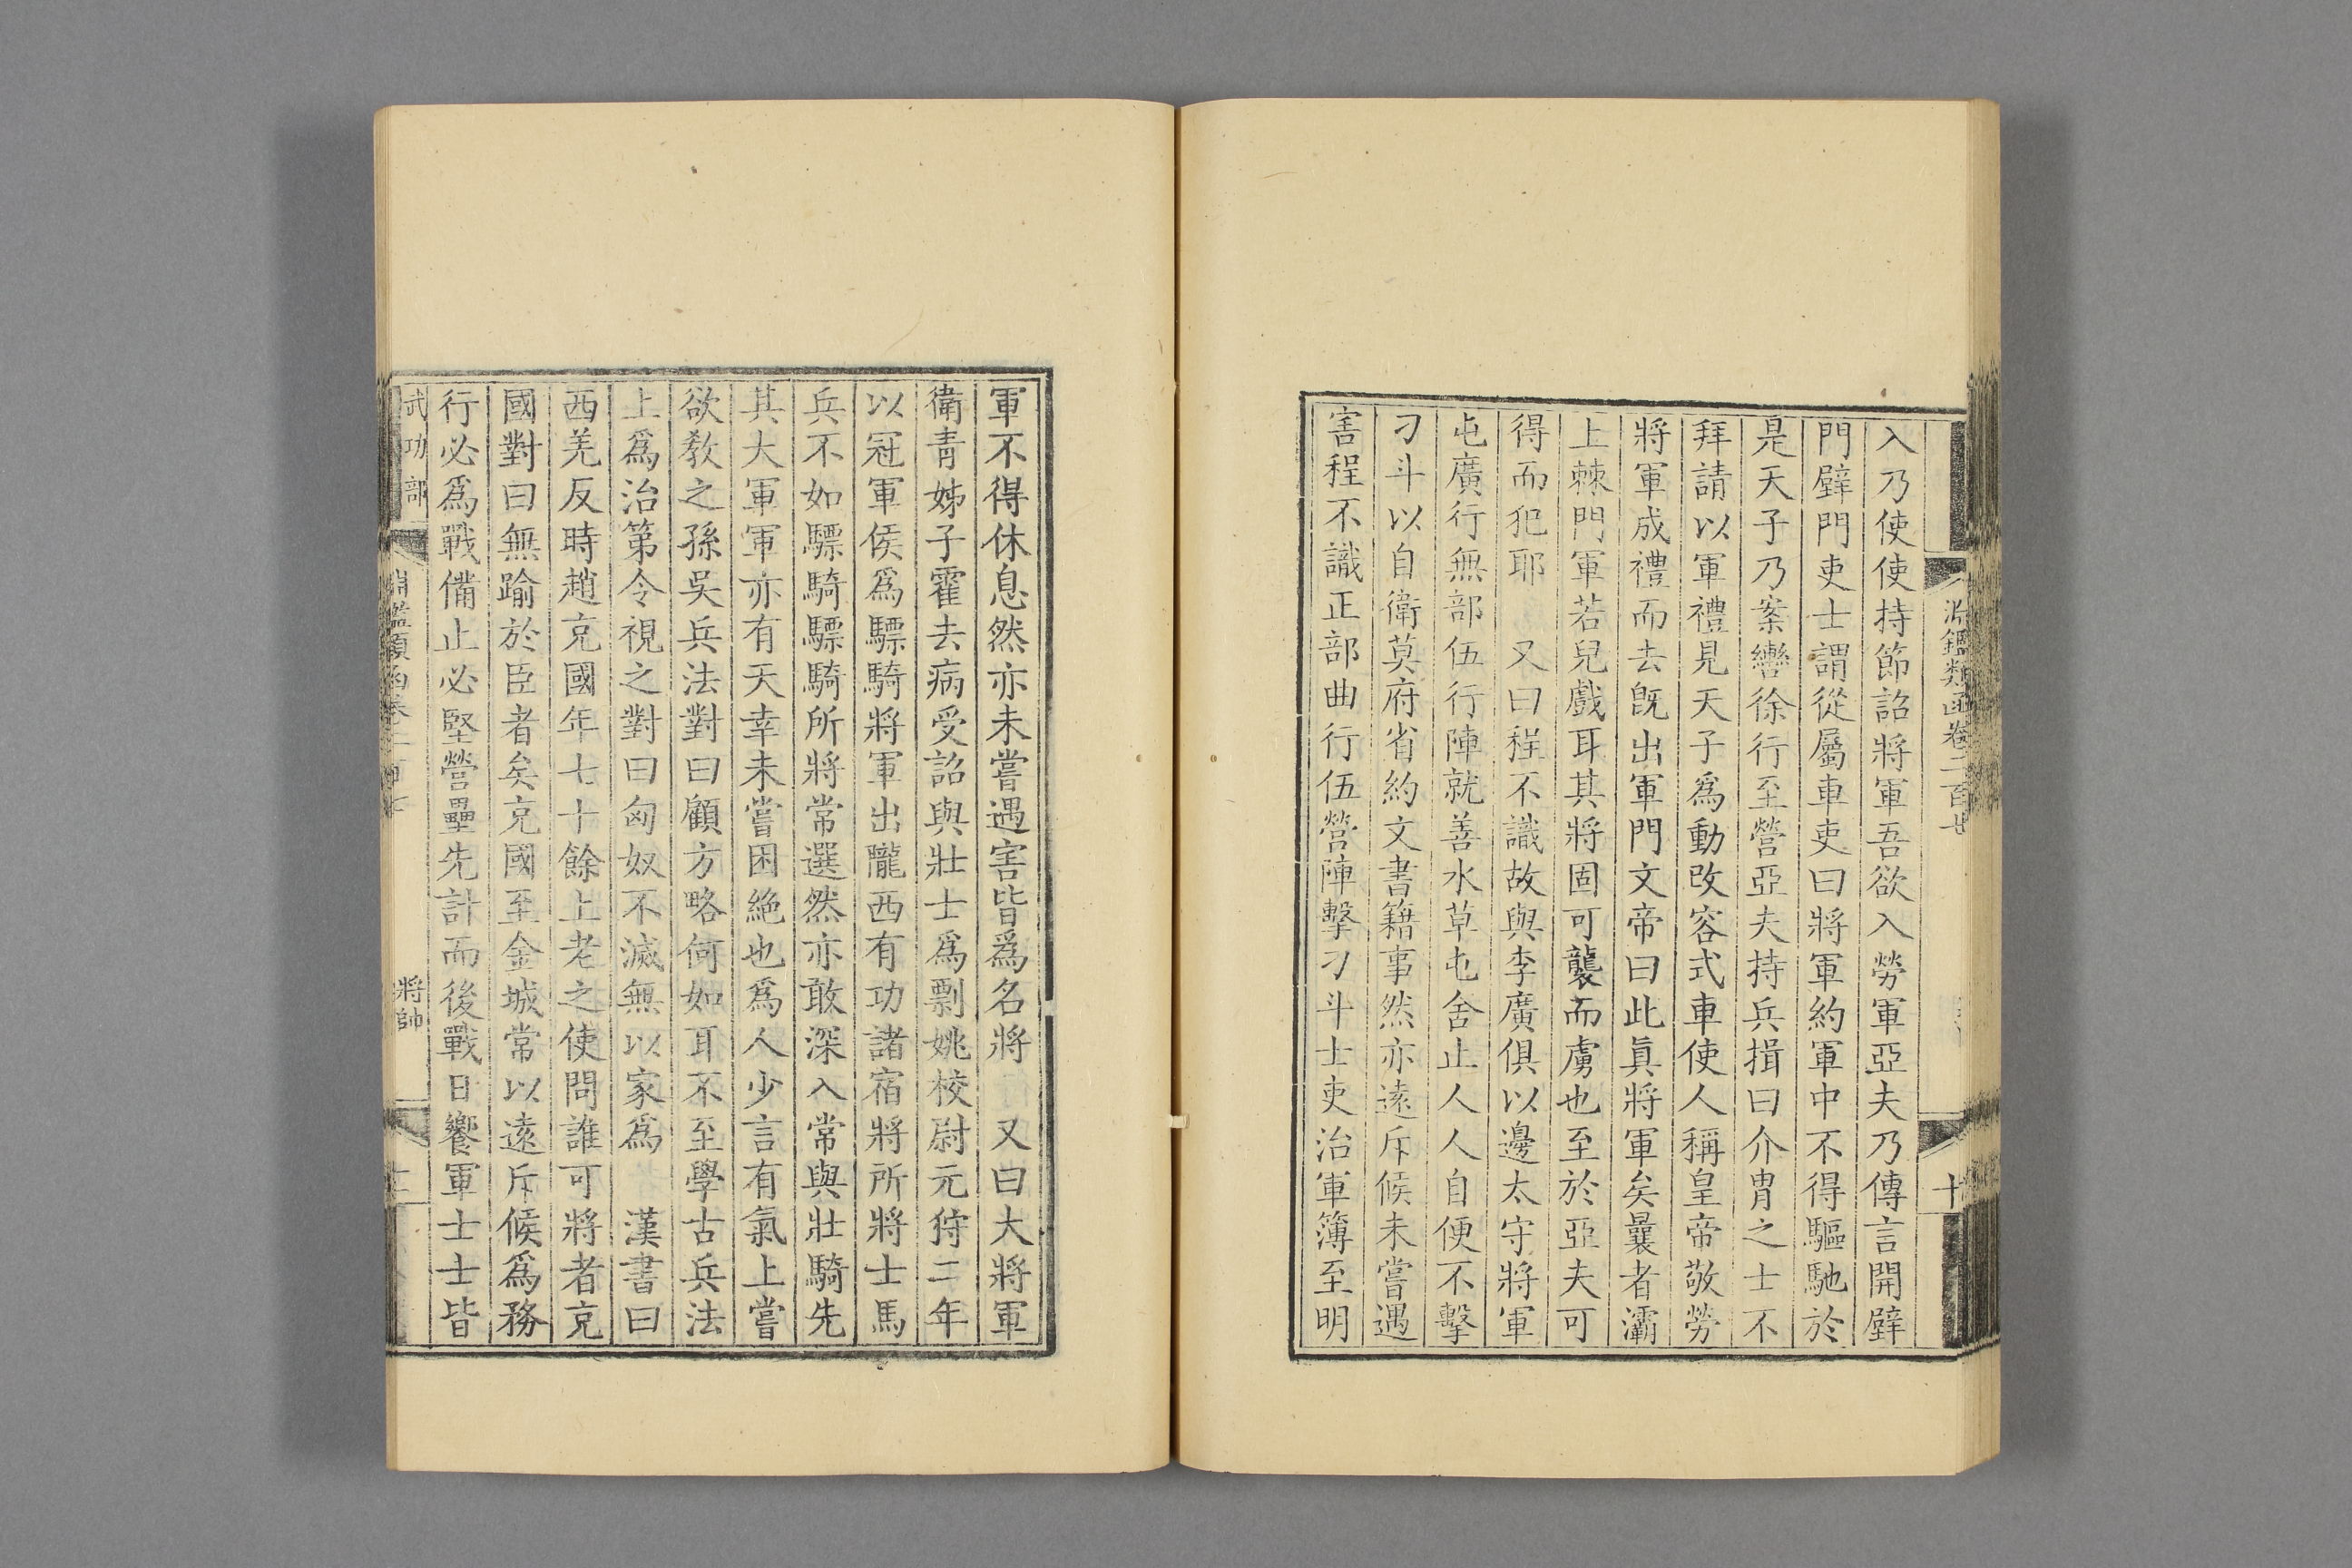 淵鑑類函卷二百七 十
入乃使使持節詔將軍吾欲入勞軍亞夫乃傳言開壁
門壁門吏士謂從屬車吏曰將軍約軍中不得驅馳於
是天子乃案轡徐行至營亞夫持兵揖曰介胄之士不
拜請以軍禮見天子爲動改容式車使人稱皇帝敬勞
將軍成禮而去旣出軍門文帝曰此眞將軍矣曩者灞
上棘門軍若兒戲耳其將固可襲而虜也至於亞夫可
得而犯耶　又曰程不識故與李廣俱以邊太守將軍
屯廣行無部伍行陣就善水草屯舍止人人自便不擊
刁斗以自衛莫府省約文書籍事然亦遠斥候未嘗遇
害程不識正部曲行伍營陣擊刁斗士吏治軍簿至明
軍不得休息然亦未嘗遇害皆爲名將　又曰大將軍
衛青姊子霍去病受詔與壯士爲剽姚校尉元狩二年
以冠軍侯爲驃騎將軍出隴西有功諸宿將所將士馬
兵不如驃騎驃騎所將常選然亦敢深入常與壯騎先
其大軍軍亦有天幸未嘗困絶也爲人少言有氣上嘗
欲敎之孫吳兵法對曰顧方略何如耳不至學古兵法
上爲治第令視之對曰匈奴不滅無以家爲　漢書曰
西羌反時趙充國年七十餘上老之使問誰可將者充
國對曰無踰於臣者矣充國至金城常以遠斥候爲務
行必爲戰備止必堅營壘先計而後戰日饗軍士士皆
武功部 類函卷二百七 將帥